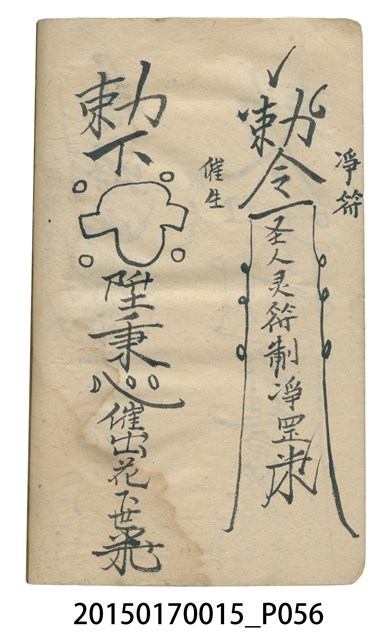 淨符
勅令
圣人灵符制淨罡
催生
勅下
陞秉心催出花下世
20150170015_P056